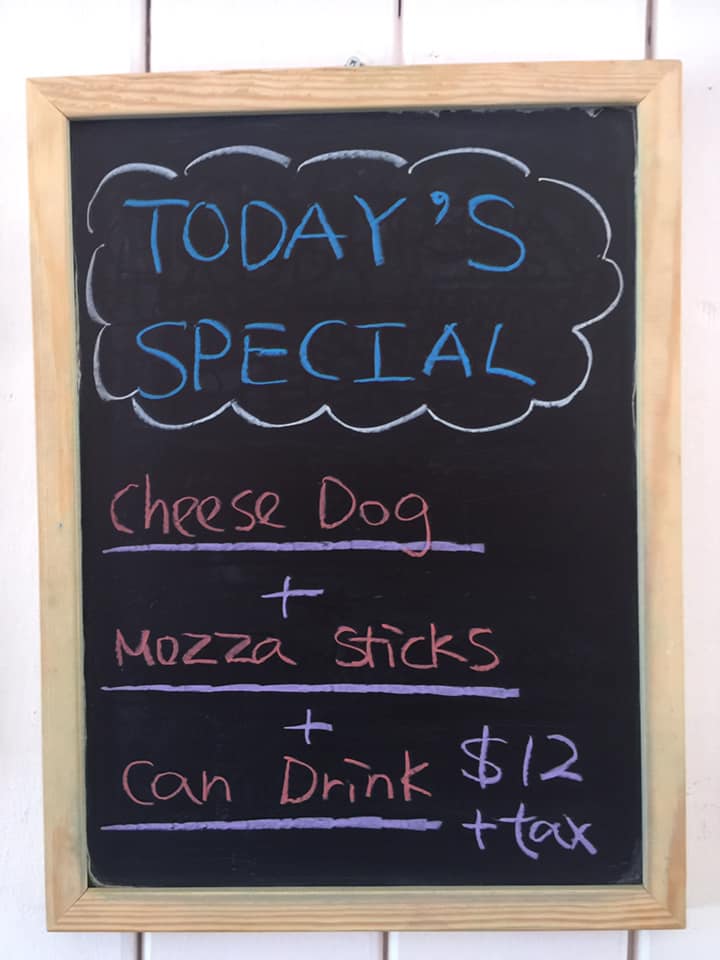 TODAY'S
SPECIAL
Cheese Dog
+
Mozza Sticks
+
Can Drink $12
+tax